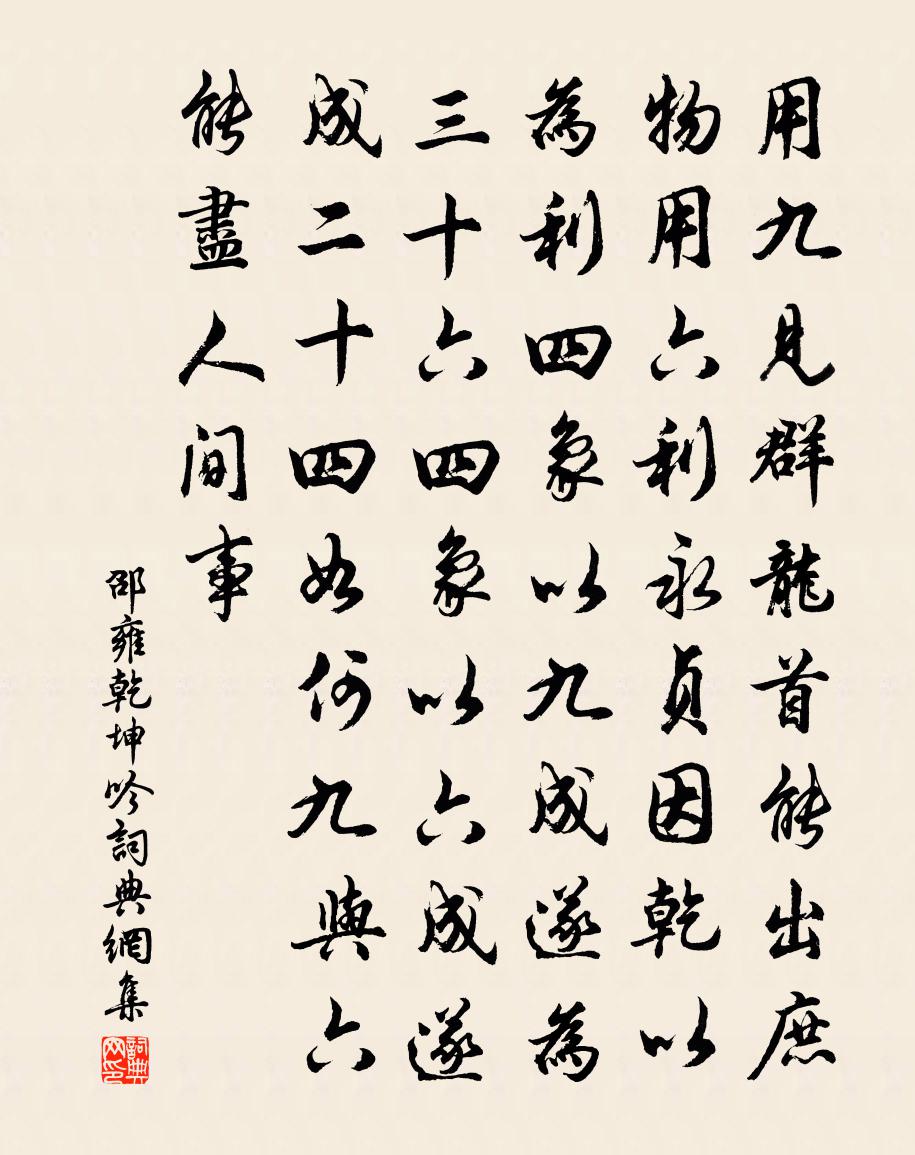 用九見群龍首能出庶
物用六利永貞因乾以
為利四象以九成遂為
三十六四象以六成遂
成二十四如何九與六
能盡人間事
邵雍乾坤吟詞典網集
詞典网印